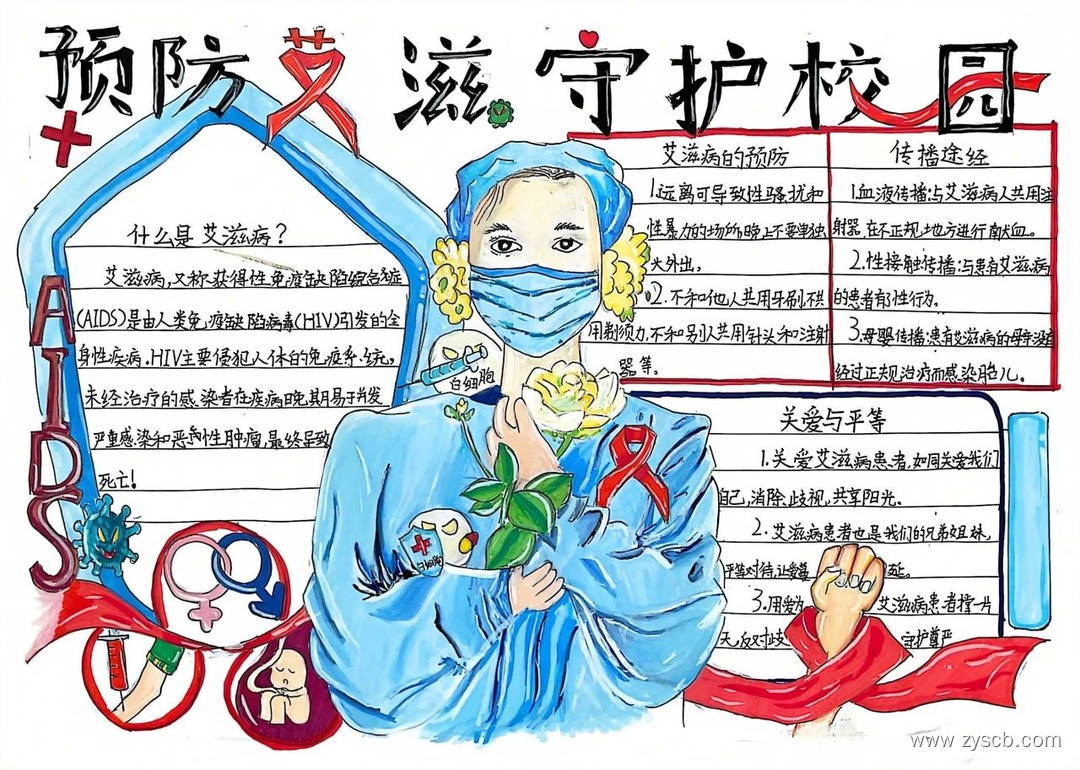 预防艾滋 守护校园
什么是艾滋病?
艾滋病,又称获得性免疫缺陷综合症
(AIDS)是由人类免疫缺陷病毒(HIV)引发的全
身性疾病.HIV主要侵犯人体的免疫系统,
未经治疗的感染者在疾病晚期易于并发
严重感染和恶性肿瘤,最终导致
死亡!
AIDS
艾滋病的预防
1.远离可导致性骚扰和
性暴力的场所晚上不要单独
外出。
2.不和他人共用牙刷不共
用剃须刀,不和别人共用针头和注射
器等。
传播途经
1.血液传播:与艾滋病人共用注
射器,在不正规地方进行献血。
2.性接触传播:与患有艾滋病
的患者有性行为。
3.母婴传播:患有艾滋病的母亲没有
经过正规治疗而感染胎儿。
白细胞
白细胞
关爱与平等
1.关爱艾滋病患者,如同关爱我们
自己,消除歧视,共享阳光。
2.艾滋病患者也是我们的兄弟姐妹,
平等对待,让爱蔓延。
3.用爱为 艾滋病患者撑一片
天,反对歧 守护尊严
www.zyscb.com